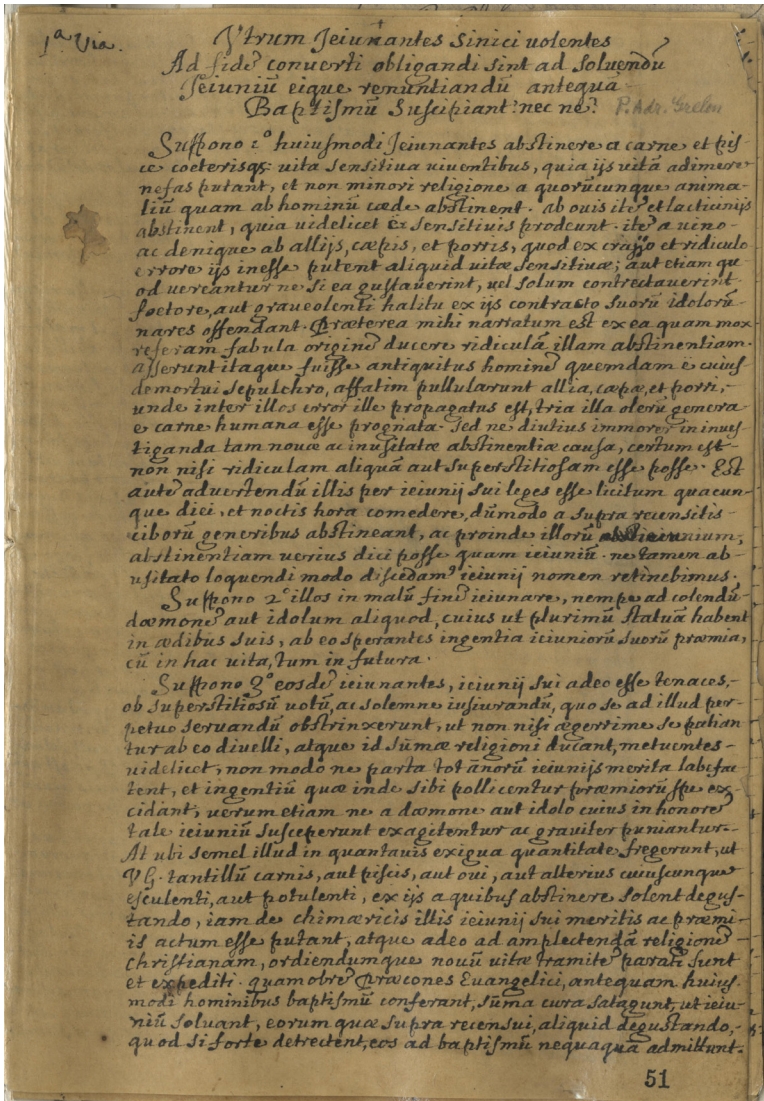 1ᵃ Via.
Vtrum Jeiunantes Sinici uolentes
Ad fidẽ conuerti obligandi sint ad soluendũ
Jeiuniũ eique renuntiandũ antequã
Baptismũ Suscipiant? nec ne? P. Adr. Grelon
Suppono 1º huiusmodi Jeiunantes abstinere a carne et pis-
ce coeterisq; uita sensitiua uiuentibus, quia ijs uitã adimere
nefas putant, et non minori religione a quorũcunque anima-
liũ quam ab hominũ cæde abstinent. ab ouis itẽ et lacticinijs
abstinent, quia uidelicet ex sensitiuis prodeunt. itẽ a uino
ac denique ab allijs, cæpis, et porris, quod ex crasso et ridiculo
errore ijs inesse putent aliquid uitæ sensitiuæ; aut etiam qu-
od uereantur ne si ea gustauerint, uel solum contrectauerint
foetore, aut graueolenti halitu ex ijs contracto suorũ idolorũ
nares offendant. Præterea mihi narratum est ex ea quam mox
referam fabula originẽ ducere ridiculã illam abstinentiam.
asserunt itaque fuisse antiquitus hominẽ quemdam è cuius
demortui sepulchro, affatim pullularunt allia, cæpæ, et porri,
unde inter illos error ille propagatus est, tria illa olerũ genera
e carne humana esse prognata. sed ne diutius immorer in inues-
tiganda tam nouæ ac inusitatæ abstinentiæ causa, certum est
non nisi ridiculam aliquã aut superstitiosam esse posse. Est
autẽ aduertendũ illis per ieiunij sui leges esse licitum quacun-
que diei, et noctis hora comedere, dũmodo a supra recensitis
ciborũ generibus abstineant, ac proinde illorũ ieiunium,
abstinentiam uerius dici posse quam ieiuniũ. ne tamen ab
usitato loquendi modo discedam, ieiunij nomen retinebimus.
Suppono 2º illos in malũ finẽ ieiunare, nempe ad colendũ
dæmonẽ aut idolum aliquod, cuius ut plurimũ statuã habent
in ædibus suis, ab eo sperantes ingentia ieiuniorũ suorũ præmia,
cũ in hac uita, tum in futura.
Suppono 3º eosdẽ ieiunantes, ieiunij sui adeo esse tenaces,
ob superstitiosũ uotũ, ac solemne iusiurandũ, quo se ad illud per-
petuo seruandũ obstrinxerunt, ut non nisi ægerrime se patian
tur ab eo diuelli, atque id sũmæ religioni ducant, metuentes
uidelicet, non modo ne parta tot ãnorũ ieiunijs merita labefac
tent, et ingentiũ quæ inde sibi pollicentur præmiorũ spe ex-
cidant, uerum etiam ne a dæmone aut idolo cuius in honorẽ
tale ieiuniũ susceperunt exagitentur ac grauiter puniantur.
At ubi semel illud in quantauis exigua quantitate fregerunt, ut
V.G. tantillũ carnis, aut piscis, aut oui, aut alterius cuiuscunque
esculenti, aut potulenti, ex ijs a quibus abstinere solent degus-
tando, iam de chimæricis illis ieiunij sui meritis ac præmi-
is actum esse putant, atque adeo ad amplectendã religionẽ
christianam, ordiendumque nouũ uitæ tramitẽ parati sunt
et expediti. quamobrẽ Præcones Euangelici, antequam huius-
modi hominibus baptismũ conferant, sũma cura satagunt, ut ieiu-
niũ soluant, eorum quæ supra recensui, aliquid degustando,
quod si forte detrectent, eos ad baptismũ nequaquã admittunt.
51